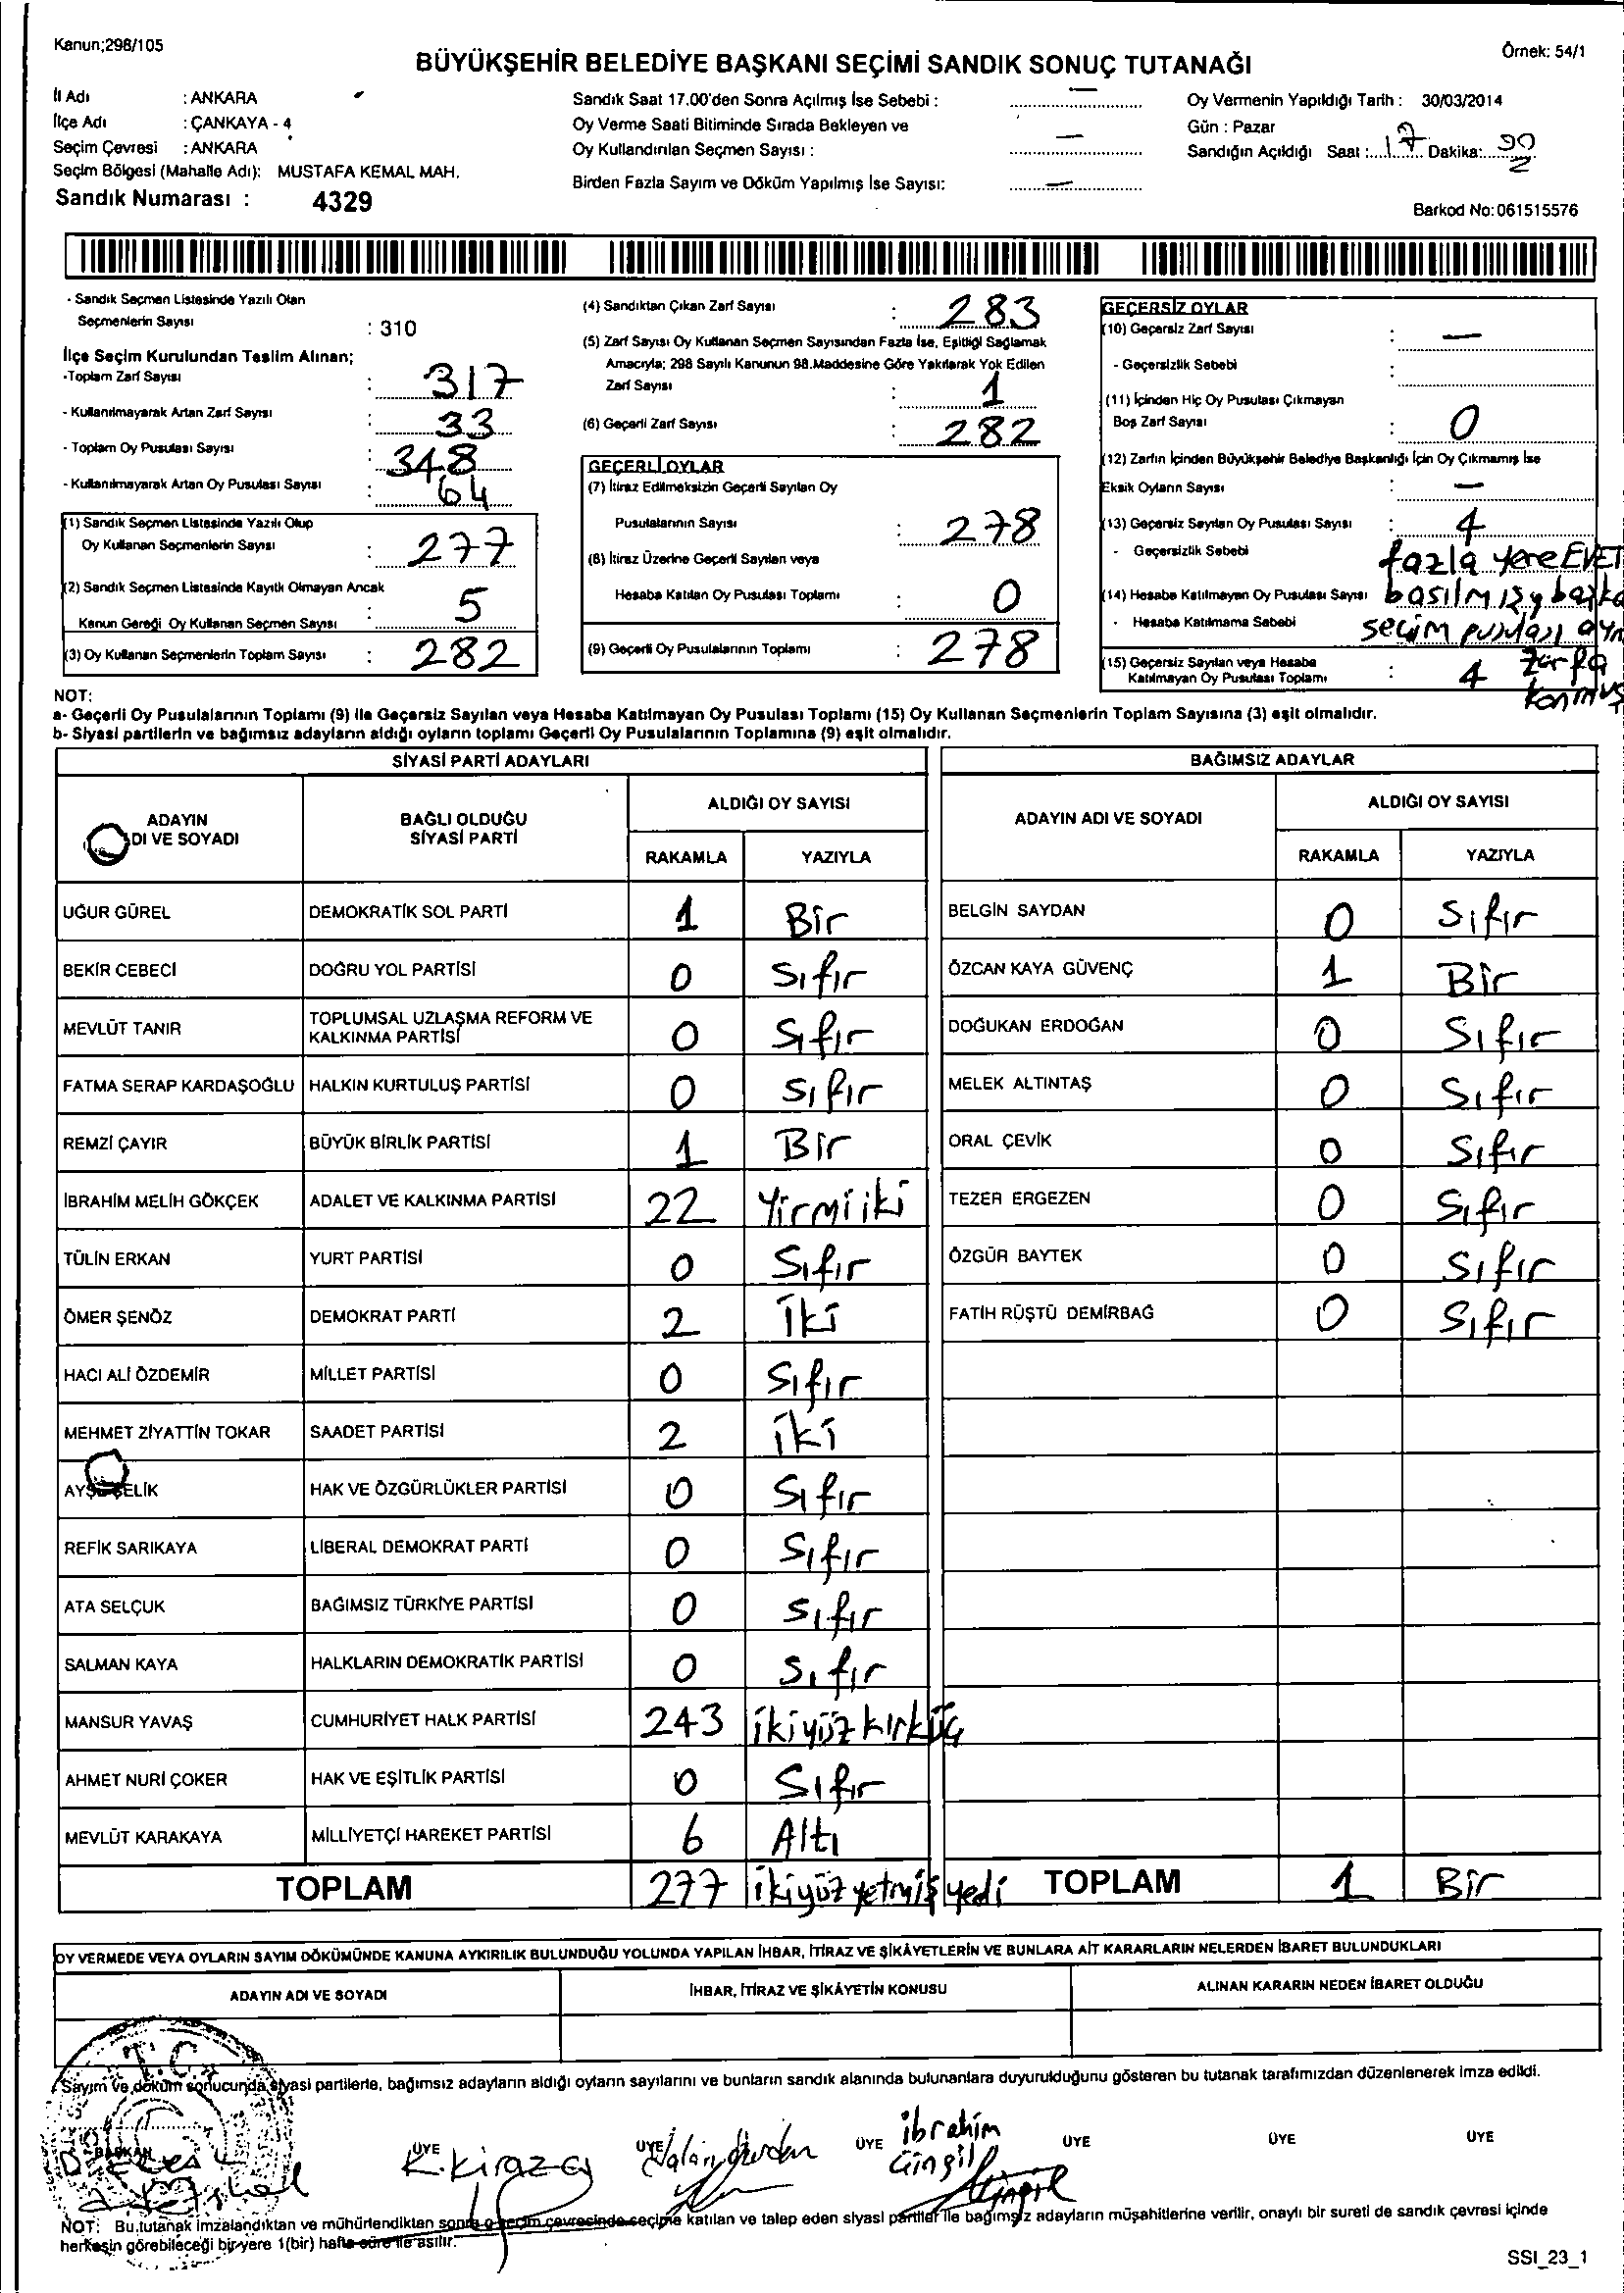 Kanun;298/105
Örnek: 54/1
BÜYÜKŞEHİR BELEDİYE BAŞKANI SEÇİMİ SANDIK SONUÇ TUTANAĞI
İl Adı : ANKARA
İlçe Adı : ÇANKAYA - 4
Seçim Çevresi : ANKARA
Seçim Bölgesi (Mahalle Adı): MUSTAFA KEMAL MAH.
Sandık Numarası : 4329
Sandık Saat 17.00'den Sonra Açılmış İse Sebebi : —
Oy Verme Saati Bitiminde Sırada Bekleyen ve
Oy Kullandırılan Seçmen Sayısı : —
Birden Fazla Sayım ve Döküm Yapılmış İse Sayısı: —
Oy Vermenin Yapıldığı Tarih : 30/03/2014
Gün : Pazar
Sandığın Açıldığı Saat : 17 Dakika:
Barkod No:061515576
- Sandık Seçmen Listesinde Yazılı Olan
Seçmenlerin Sayısı : 310
İlçe Seçim Kurulundan Teslim Alınan;
-Toplam Zarf Sayısı : 317
- Kullanılmayarak Artan Zarf Sayısı : 33
- Toplam Oy Pusulası Sayısı : 348
- Kullanılmayarak Artan Oy Pusulası Sayısı : 64
(1) Sandık Seçmen Listesinde Yazılı Olup
Oy Kullanan Seçmenlerin Sayısı : 277
(2) Sandık Seçmen Listesinde Kayıtlı Olmayan Ancak
Kanun Gereği Oy Kullanan Seçmen Sayısı : 5
(3) Oy Kullanan Seçmenlerin Toplam Sayısı : 282
(4) Sandıktan Çıkan Zarf Sayısı : 283
(5) Zarf Sayısı Oy Kullanan Seçmen Sayısından Fazla İse, Eşitliği Sağlamak
Amacıyla; 298 Sayılı Kanunun 98.Maddesine Göre Yakılarak Yok Edilen
Zarf Sayısı : 1
(6) Geçerli Zarf Sayısı : 282
GEÇERLİ OYLAR
(7) İtiraz Edilmeksizin Geçerli Sayılan Oy
Pusulalarının Sayısı : 278
(8) İtiraz Üzerine Geçerli Sayılan veya
Hesaba Katılan Oy Pusulası Toplamı : 0
(9) Geçerli Oy Pusulalarının Toplamı : 278
GEÇERSİZ OYLAR
(10) Geçersiz Zarf Sayısı : —
- Geçersizlik Sebebi :
(11) İçinden Hiç Oy Pusulası Çıkmayan
Boş Zarf Sayısı : 0
(12) Zarfın İçinden Büyükşehir Belediye Başkanlığı İçin Oy Çıkmamış İse
Eksik Oyların Sayısı : —
(13) Geçersiz Sayılan Oy Pusulası Sayısı : 4
- Geçersizlik Sebebi fazla yere EVET
(14) Hesaba Katılmayan Oy Pusulası Sayısı basılmış, başka
- Hesaba Katılmama Sebebi seçim pusulası aynı
(15) Geçersiz Sayılan veya Hesaba zarfa
Katılmayan Oy Pusulası Toplamı : 4 konmuş
NOT:
a- Geçerli Oy Pusulalarının Toplamı (9) ile Geçersiz Sayılan veya Hesaba Katılmayan Oy Pusulası Toplamı (15) Oy Kullanan Seçmenlerin Toplam Sayısına (3) eşit olmalıdır.
b- Siyasi partilerin ve bağımsız adayların aldığı oyların toplamı Geçerli Oy Pusulalarının Toplamına (9) eşit olmalıdır.
SİYASİ PARTİ ADAYLARI
BAĞIMSIZ ADAYLAR
ADAYIN
ADI VE SOYADI
BAĞLI OLDUĞU
SİYASİ PARTİ
ALDIĞI OY SAYISI
RAKAMLA YAZIYLA
ADAYIN ADI VE SOYADI
ALDIĞI OY SAYISI
RAKAMLA YAZIYLA
UĞUR GÜREL DEMOKRATİK SOL PARTİ 1 Bir BELGİN SAYDAN 0 Sıfır
BEKİR CEBECİ DOĞRU YOL PARTİSİ 0 Sıfır ÖZCAN KAYA GÜVENÇ 1 Bir
MEVLÜT TANIR TOPLUMSAL UZLAŞMA REFORM VE
KALKINMA PARTİSİ 0 Sıfır DOĞUKAN ERDOĞAN 0 Sıfır
FATMA SERAP KARDAŞOĞLU HALKIN KURTULUŞ PARTİSİ 0 Sıfır MELEK ALTINTAŞ 0 Sıfır
REMZİ ÇAYIR BÜYÜK BİRLİK PARTİSİ 1 Bir ORAL ÇEVİK 0 Sıfır
İBRAHİM MELİH GÖKÇEK ADALET VE KALKINMA PARTİSİ 22 Yirmiiki TEZER ERGEZEN 0 Sıfır
TÜLİN ERKAN YURT PARTİSİ 0 Sıfır ÖZGÜR BAYTEK 0 Sıfır
ÖMER ŞENÖZ DEMOKRAT PARTİ 2 İki FATİH RÜŞTÜ DEMİRBAĞ 0 Sıfır
HACI ALİ ÖZDEMİR MİLLET PARTİSİ 0 Sıfır
MEHMET ZİYATTİN TOKAR SAADET PARTİSİ 2 İki
HAK VE ÖZGÜRLÜKLER PARTİSİ 0 Sıfır
REFİK SARIKAYA LİBERAL DEMOKRAT PARTİ 0 Sıfır
ATA SELÇUK BAĞIMSIZ TÜRKİYE PARTİSİ 0 Sıfır
SALMAN KAYA HALKLARIN DEMOKRATİK PARTİSİ 0 Sıfır
MANSUR YAVAŞ CUMHURİYET HALK PARTİSİ 243 İkiyüz kırküç
AHMET NURİ ÇOKER HAK VE EŞİTLİK PARTİSİ 0 Sıfır
MEVLÜT KARAKAYA MİLLİYETÇİ HAREKET PARTİSİ 6 Altı
TOPLAM 277 İkiyüz yetmiş yedi TOPLAM 1 Bir
OY VERMEDE VEYA OYLARIN SAYIM DÖKÜMÜNDE KANUNA AYKIRILIK BULUNDUĞU YOLUNDA YAPILAN İHBAR, İTİRAZ VE ŞİKÂYETLERİN VE BUNLARA AİT KARARLARIN NELERDEN İBARET BULUNDUKLARI
ADAYIN ADI VE SOYADI İHBAR, İTİRAZ VE ŞİKÂYETİN KONUSU ALINAN KARARIN NEDEN İBARET OLDUĞU
T.C.
Sayım ve döküm sonucunda siyasi partilerle, bağımsız adayların aldığı oyların sayılarını ve bunların sandık alanında bulunanlara duyurulduğunu gösteren bu tutanak tarafımızdan düzenlenerek imza edildi.
BAŞKAN ÜYE ÜYE ÜYE ÜYE ÜYE ÜYE
K.Kirazcı
ibrahim
Cingil
NOT: Bu tutanak imzalandıktan ve mühürlendikten sonra o seçim çevresinde seçime katılan ve talep eden siyasi partiler ile bağımsız adayların müşahitlerine verilir, onaylı bir sureti de sandık çevresi içinde
herkesin görebileceği bir yere 1(bir) hafta süre ile asılır.
SSI_23_1